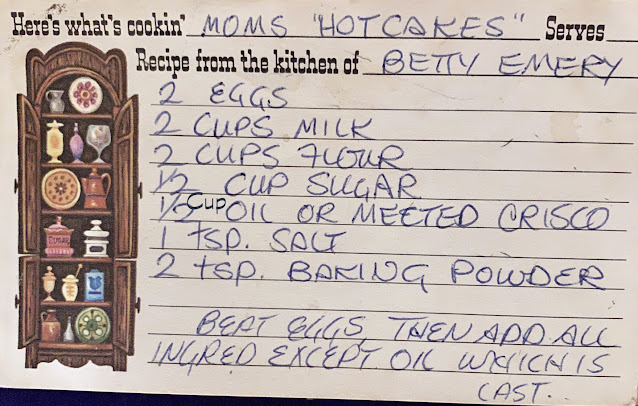 Here's what's cookin' MOMS "HOTCAKES" Serves
Recipe from the kitchen of BETTY EMERY
2 EGGS
2 CUPS MILK
2 CUPS FLOUR
1/2 CUP SUGAR
1/3 Cup OIL OR MELTED CRISCO
1 tsp. SALT
2 tsp. BAKING POWDER
BEAT EGGS, THEN ADD ALL
INGRED EXCEPT OIL WHICH IS
LAST..